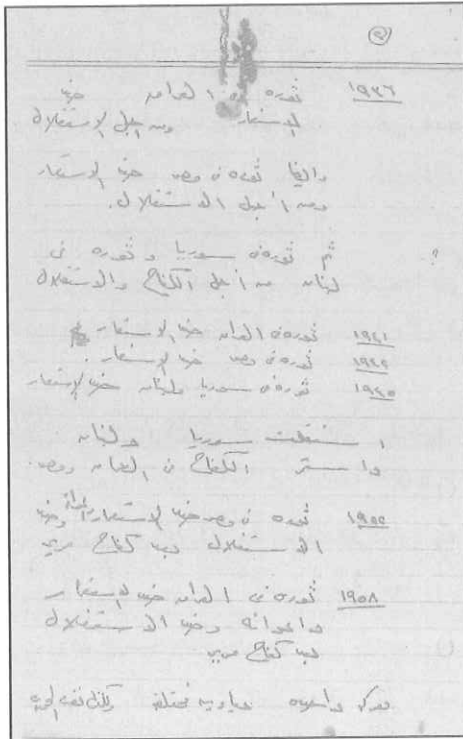 (٢)
١٩٣٦ ثورة فى العراق ضد
الاستعمار ومن اجل الاستقلال
وايضا ثورة فى مصر ضد الاستعمار
ومن اجل الاستقلال.
ثم ثورة فى سوريا وثورة فى
لبنان من اجل الكفاح والاستقلال
١٩٤١ ثورة فى العراق ضد الاستعمار
١٩٤٢ ثورة فى مصر ضد الاستعمار.
١٩٤٥ ثورة فى سوريا ولبنان ضد الاستعمار
استقلت سوريا ولبنان
واستمر الكفاح فى العراق ومصر.
١٩٥٢ ثورة فى مصر ضد الاستعمار وضد
الاستغلال بعد كفاح مرير
١٩٥٨ ثورة فى العراق ضد الاستعمار
واعوانه وضد الاستغلال
بعد كفاح مرير
معركة واحدة